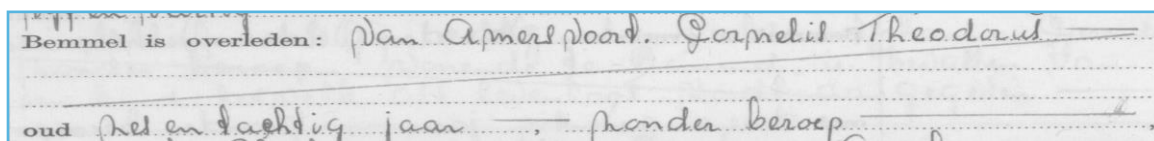 Bemmel is overleden: van Amersvoort. Cornelis Theodorus —
oud zes en tachtig jaar —, zonder beroep —,